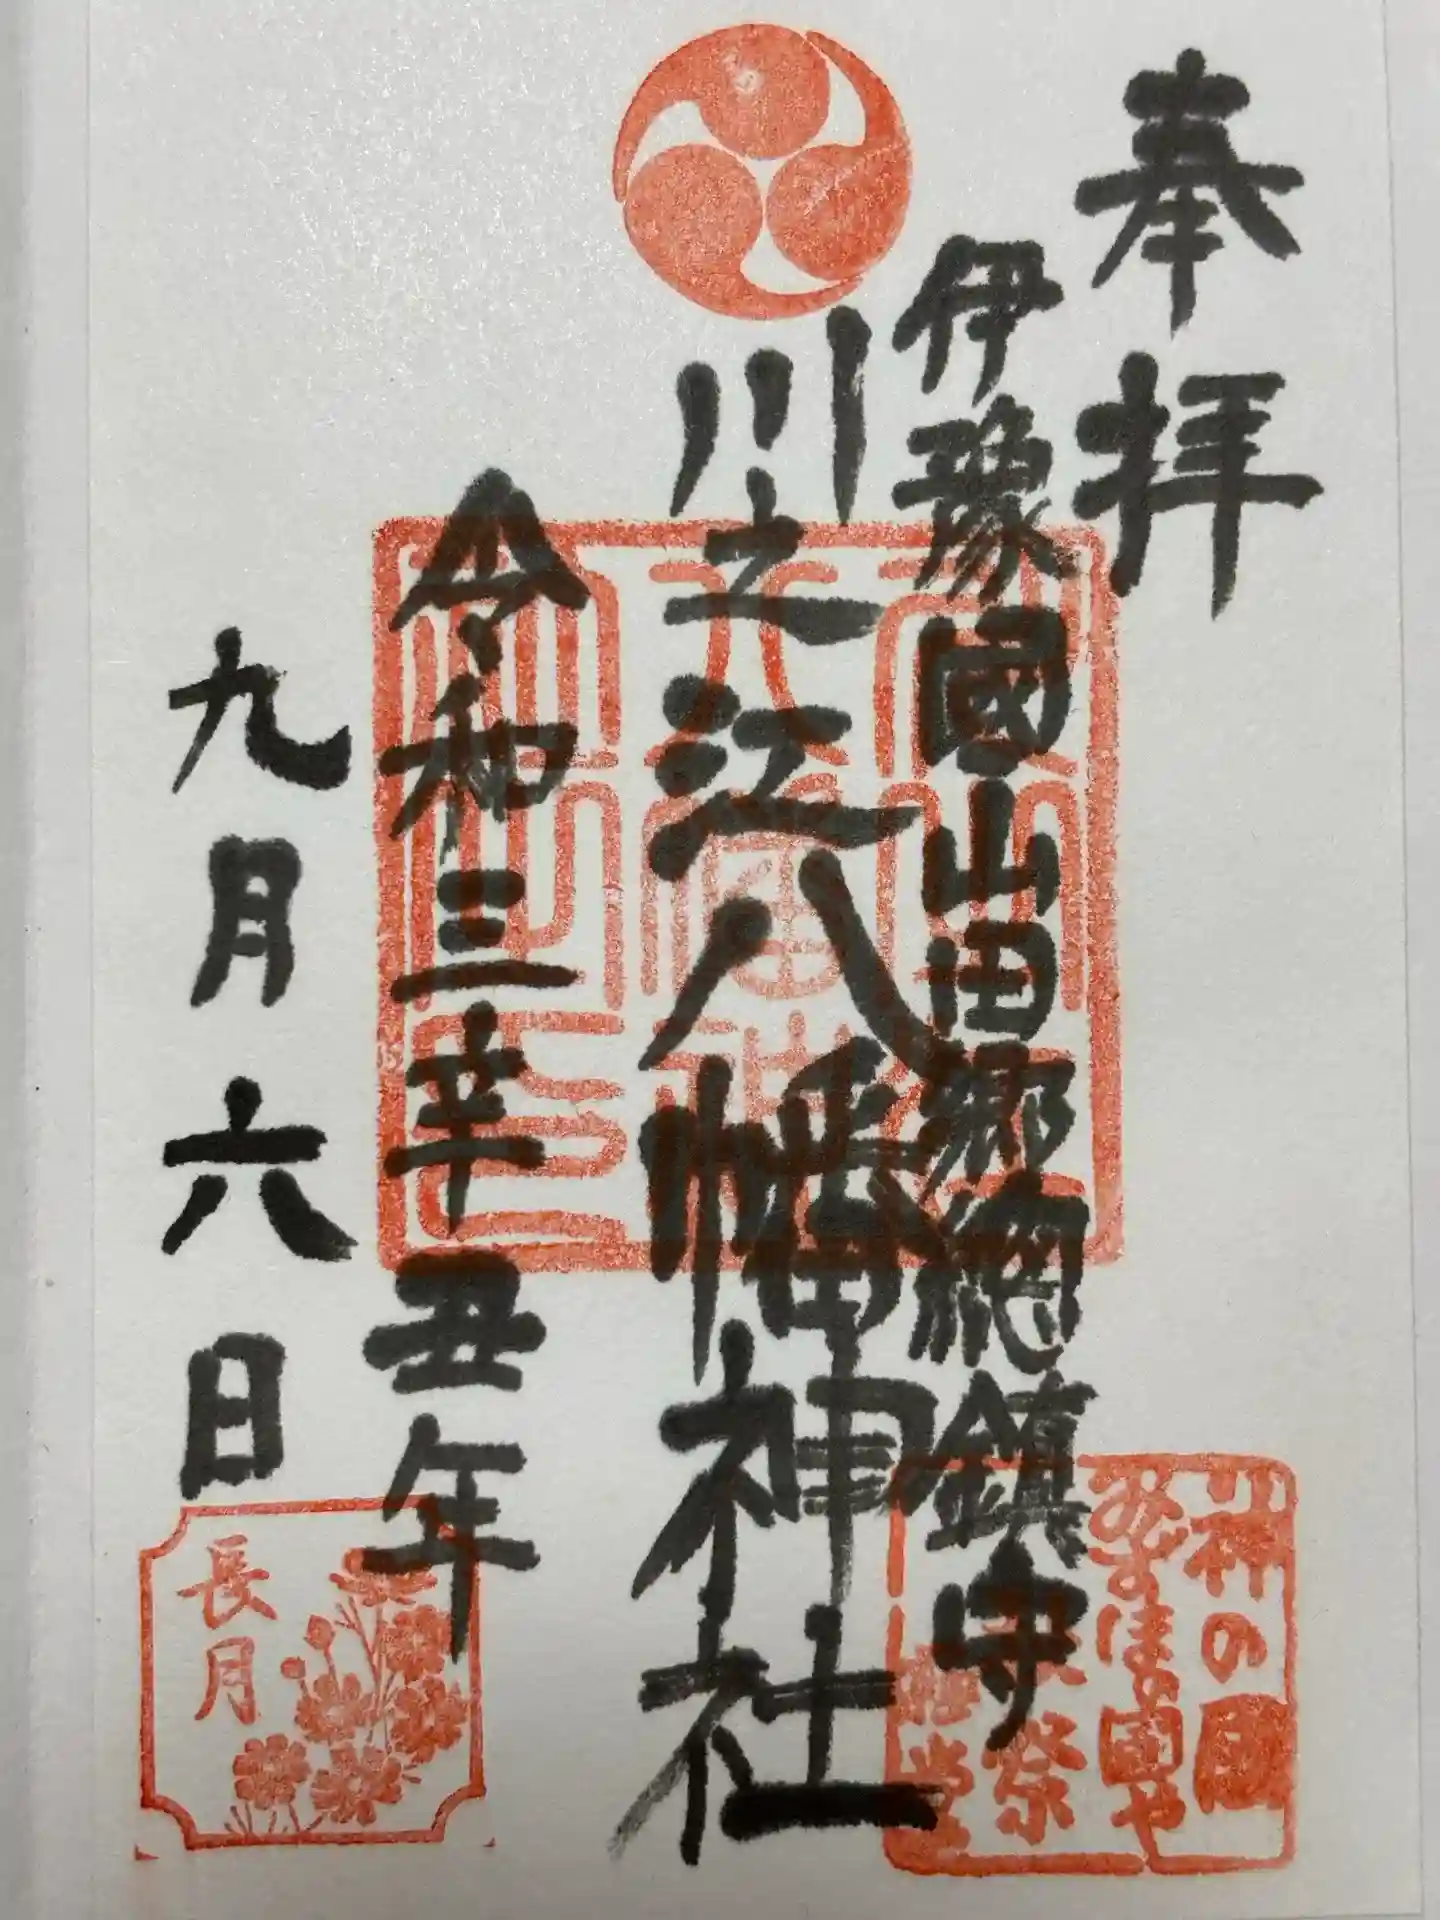 奉拝
伊豫國山田郷總鎮守
川之江八幡神社
令和三辛丑年
九月六日
長月
神の國
祭